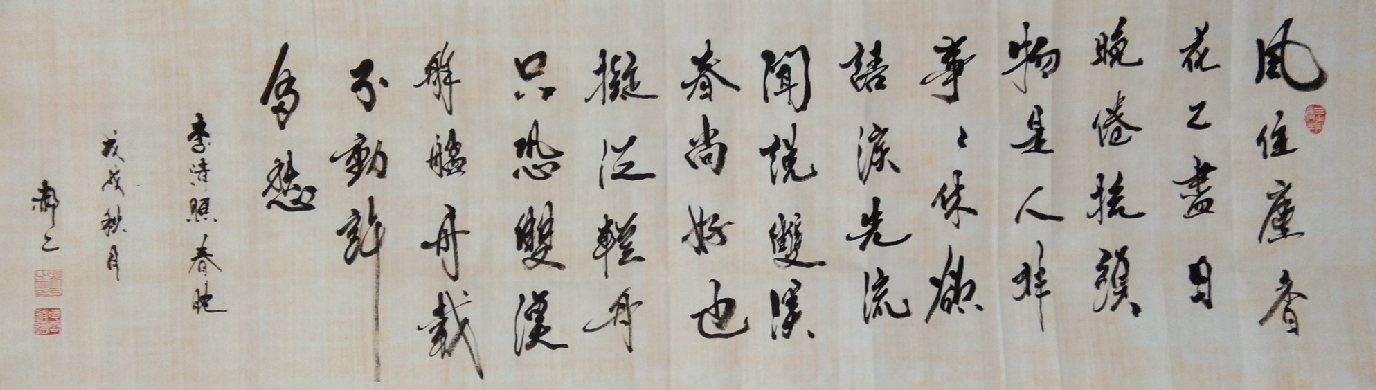 風住塵香
花已盡日
晚倦梳頭
物是人非
事〻休欲
語淚先流
聞說雙溪
春尚好也
擬泛輕舟
只恐雙溪
舴艋舟載
不動許
多愁
李清照春晚
戊戌秋月
郝